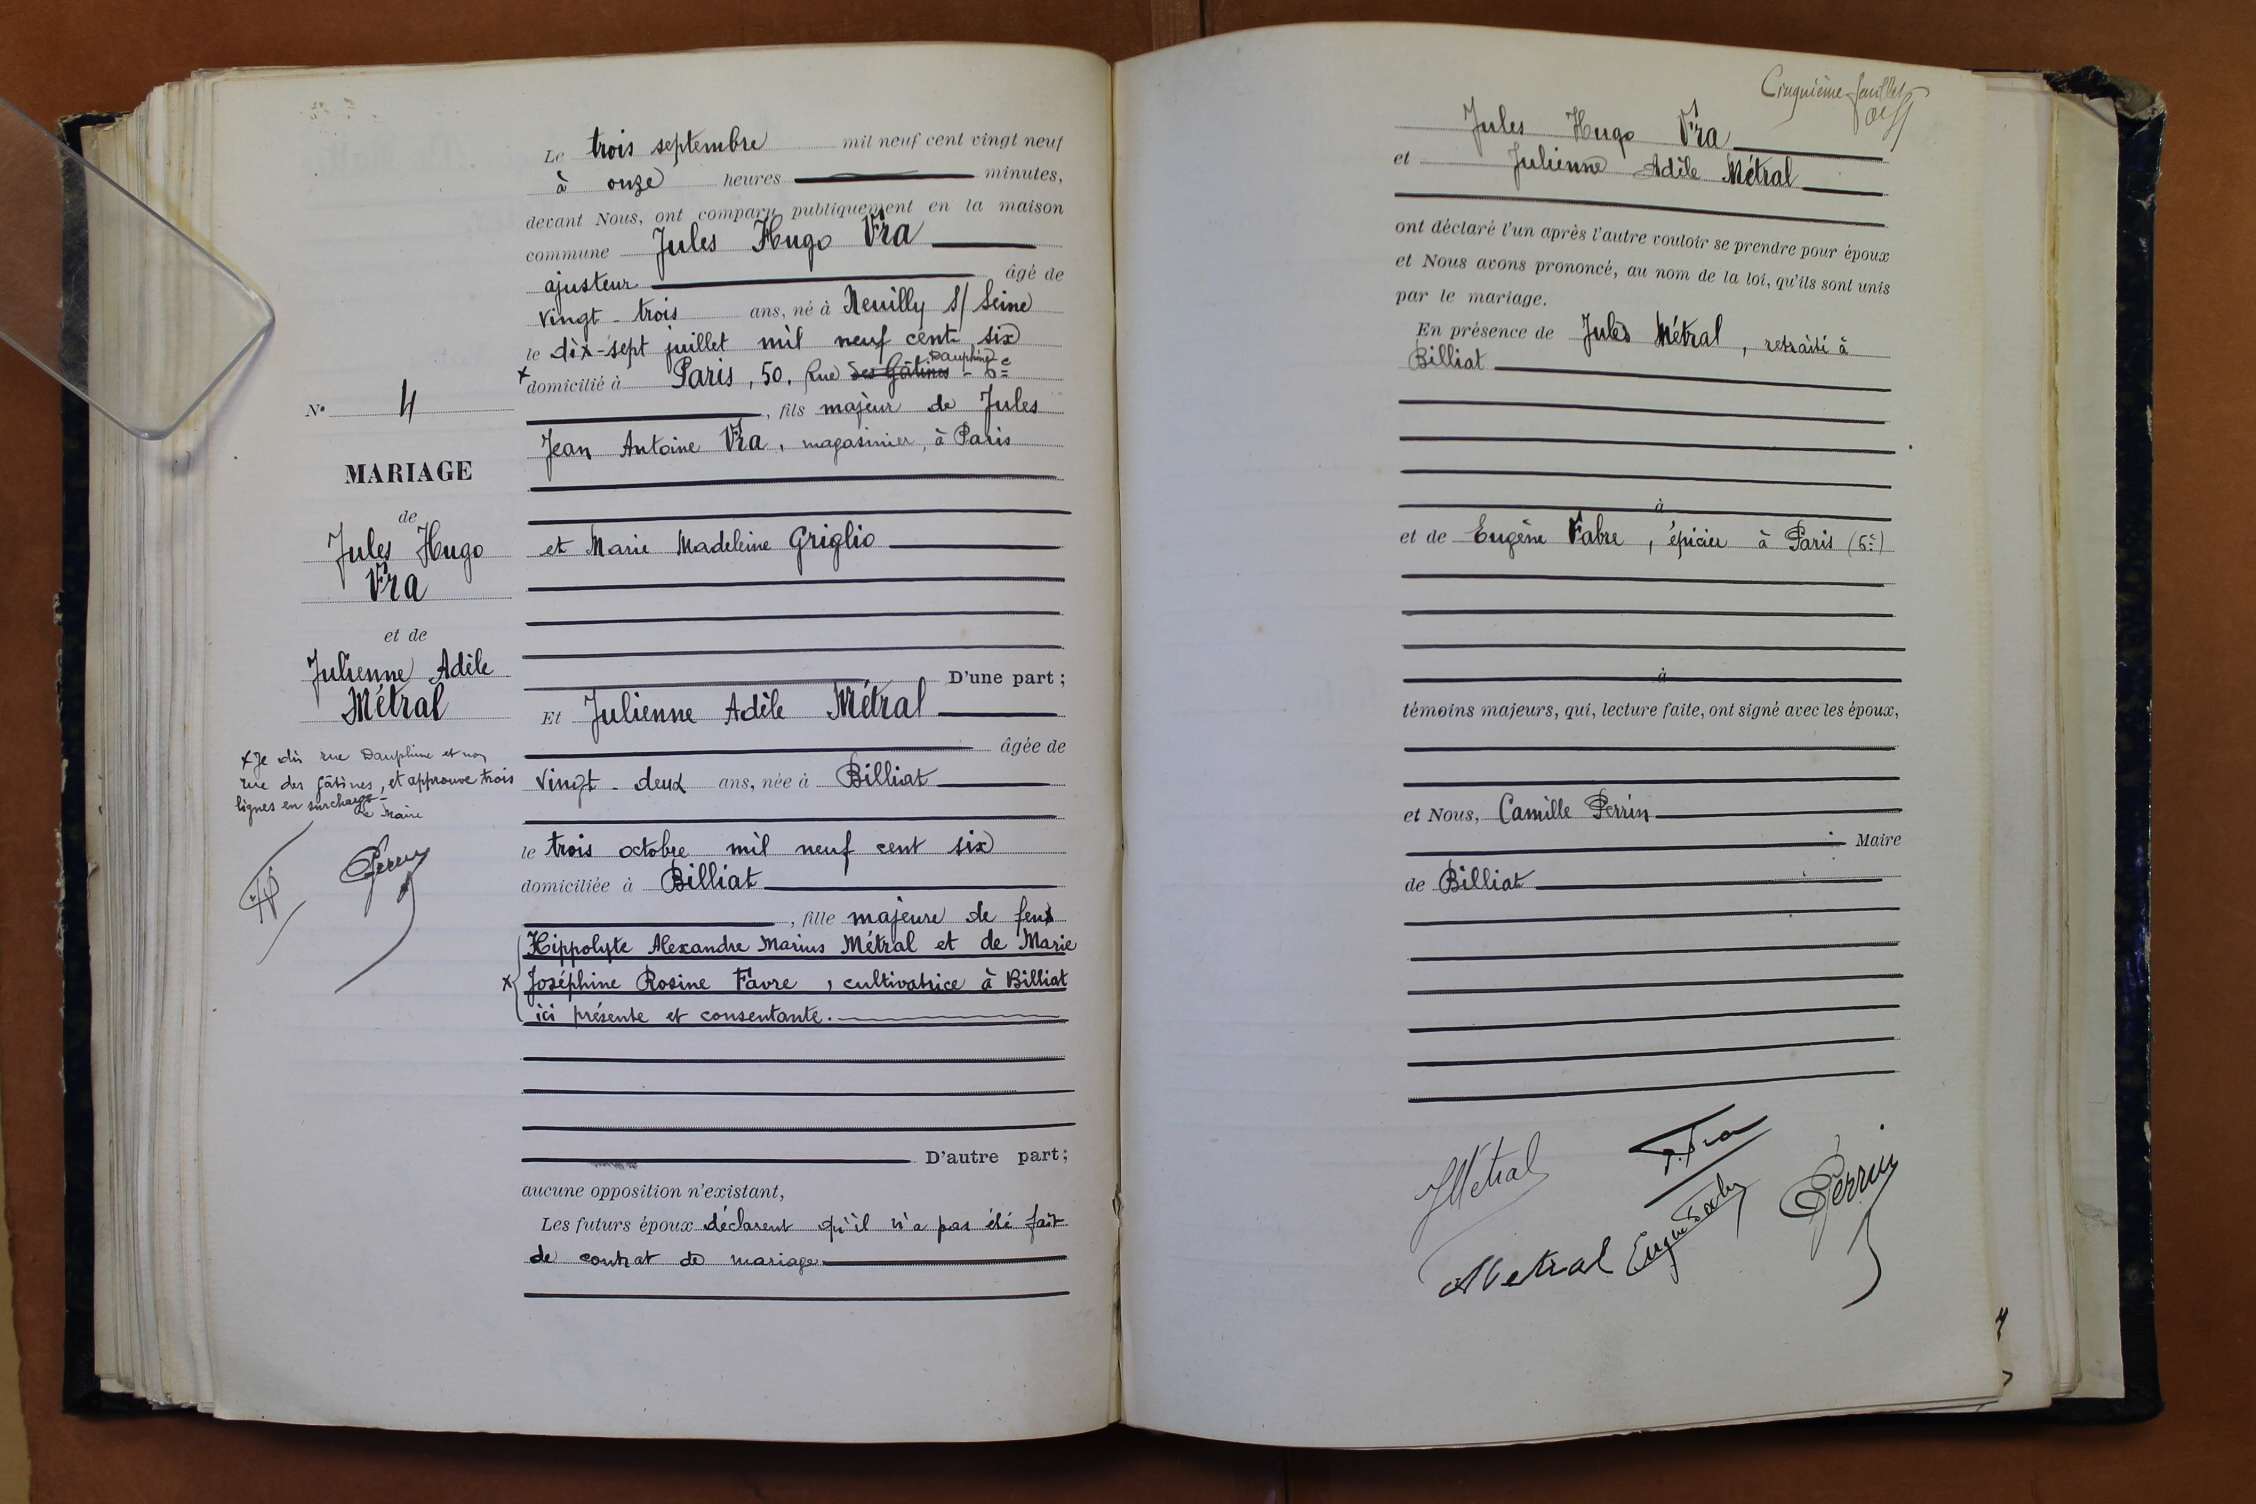 Le trois septembre mil neuf cent vingt neuf
à onze heures minutes,
devant Nous, ont comparu publiquement en la maison
commune Jules Hugo Vra
ajusteur âgé de
vingt-trois ans, né à Neuilly s/ Seine
le dix-sept juillet mil neuf cent six
Dauphine
x domicilié à Paris, 50, Rue des Gâtines - 6e
, fils majeur de Jules
Jean Antoine Vra, magasinier, à Paris
et Marie Madeleine Griglio
D'une part ;
Et Julienne Adèle Métral
âgée de
vingt-deux ans, née à Billiat
le trois octobre mil neuf cent six
domiciliée à Billiat
, fille majeure de feu
Hippolyte Alexandre Marius Métral et de Marie
x Joséphine Rosine Favre, cultivatrice à Billiat
ici présente et consentante.
D'autre part ;
aucune opposition n'existant,
Les futurs époux déclarent qu'il n'a pas été fait
de contrat de mariage
N° 4
MARIAGE
de
Jules Hugo
Vra
et de
Julienne Adèle
Métral
x Je dis rue Dauphine et non
rue des Gâtines, et approuve trois
lignes en surcharge -
Le Maire
Perrin
Cinquième feuillet
Jules Hugo Vra
et Julienne Adèle Métral
ont déclaré l'un après l'autre vouloir se prendre pour époux
et Nous avons prononcé, au nom de la loi, qu'ils sont unis
par le mariage.
En présence de Jules Métral, retraité à
Billiat
à
et de Eugène Fabre, épicier à Paris (6e)
à
témoins majeurs, qui, lecture faite, ont signé avec les époux,
et Nous, Camille Perrin
Maire
de Billiat
JMetral
J. Vra
Perrin
AMetral
Eugène